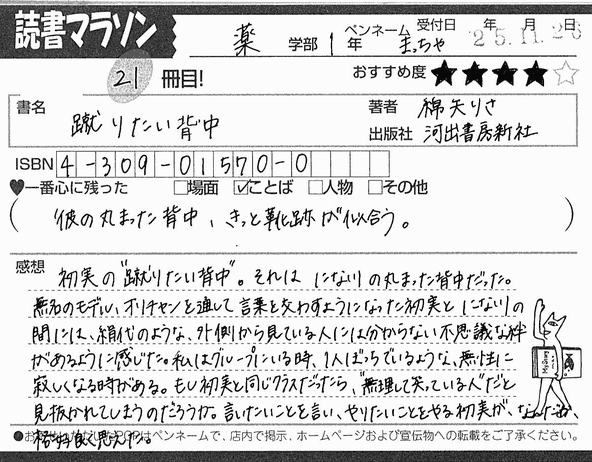 読書マラソン
薬 学部 1 年 ペンネーム まっちゃ 受付日 年 月 日 '25.11.26
21 冊目! おすすめ度 ★★★★☆
書名 蹴りたい背中
著者 綿矢りさ
出版社 河出書房新社
ISBN 4-309-01570-0
♥一番心に残った □場面 ☑ことば □人物 □その他
( 彼の丸まった背中、きっと靴跡が似合う。 )
感想
初実の"蹴りたい背中"。それは にな川の丸まった背中だった。
無名のモデル、オリチャンを通して言葉を交わすようになった初実と にな川の
間には、絹代のような、外側から見ている人には分からない不思議な絆
があるように感じた。私はグループにいる時、1人ぼっちでいるような、無性に
寂しくなる時がある。もし初実と同じクラスだったら、"無理して笑っている人"だと
見抜かれてしまうのだろうか。言いたいことを言い、やりたいことをやる初実が、なんだか、
格好良く思えた。
●お はペンネームで、店内で掲示、ホームページおよび宣伝物への転載をご了承ください。